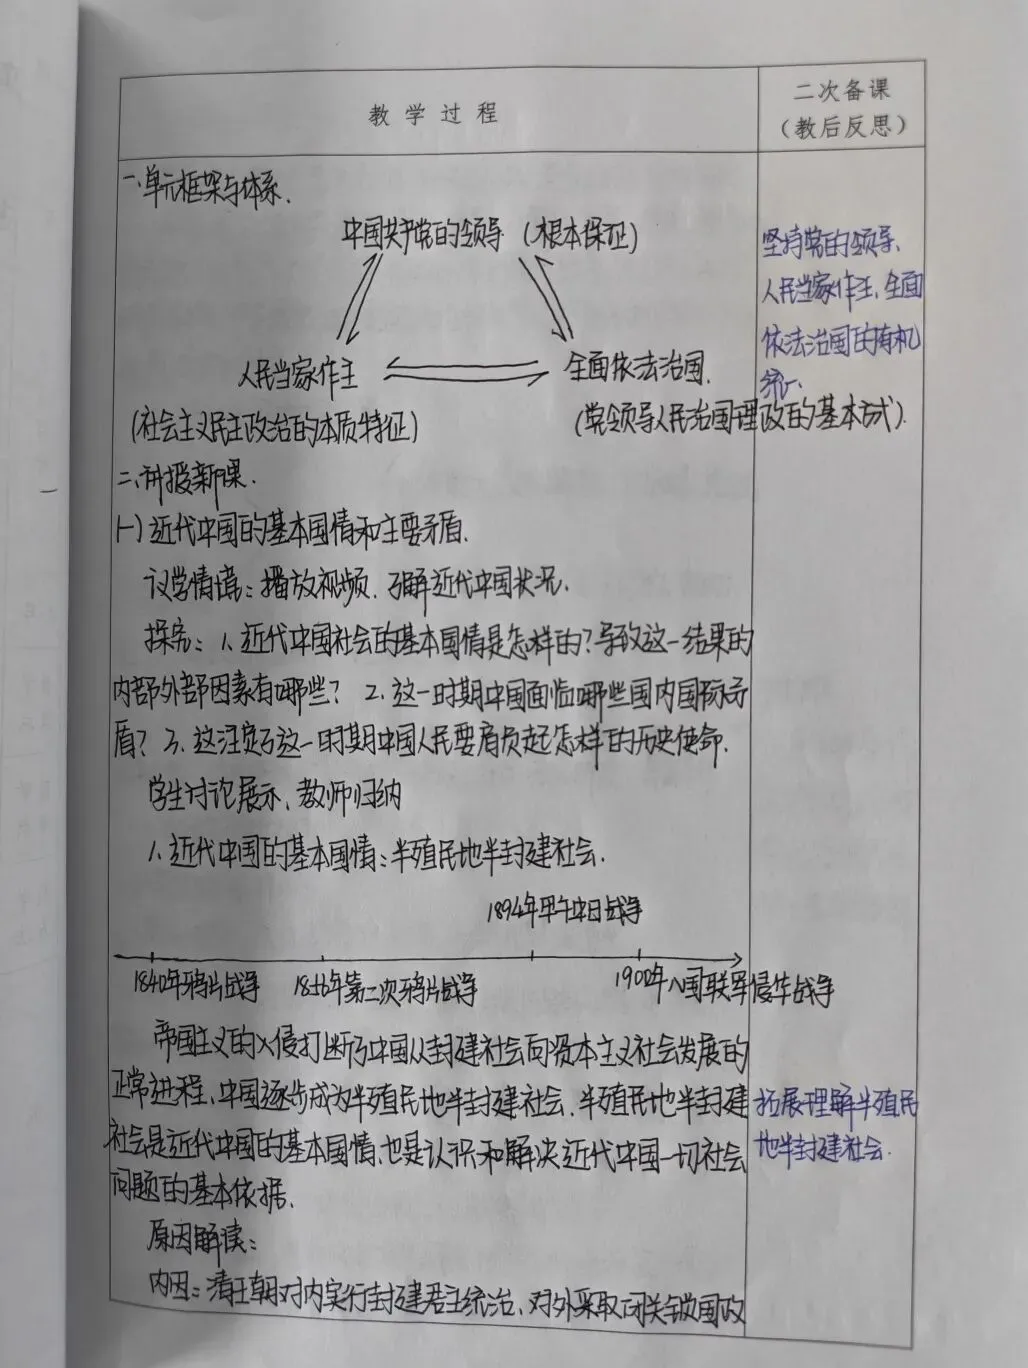 教学过程
二次备课
（教后反思）
一、单元框架与体系.
中国共产党的领导（根本保证）
人民当家作主
全面依法治国.
（社会主义民主政治的本质特征）
（党领导人民治国理政的基本方式）.
坚持党的领导、
人民当家作主、全面
依法治国的有机
统一.
二、讲授新课.
(一)近代中国的基本国情和主要矛盾.
议学情境：播放视频，了解近代中国状况.
探究：1.近代中国社会的基本国情是怎样的？导致这一结果的
内部外部因素有哪些？ 2.这一时期中国面临哪些国内国际矛
盾？3.这注定了这一时期中国人民要肩负起怎样的历史使命.
学生讨论展示，教师归纳
1.近代中国的基本国情：半殖民地半封建社会.
1894年甲午中日战争
1840年鸦片战争
1856年第二次鸦片战争
1900年八国联军侵华战争
帝国主义的入侵打断了中国从封建社会向资本主义社会发展的
正常进程，中国逐步成为半殖民地半封建社会.半殖民地半封建
社会是近代中国的基本国情，也是认识和解决近代中国一切社会
问题的基本依据.
拓展理解半殖民
地半封建社会.
原因解读：
内因：清王朝对内实行封建君主统治，对外采取闭关锁国政